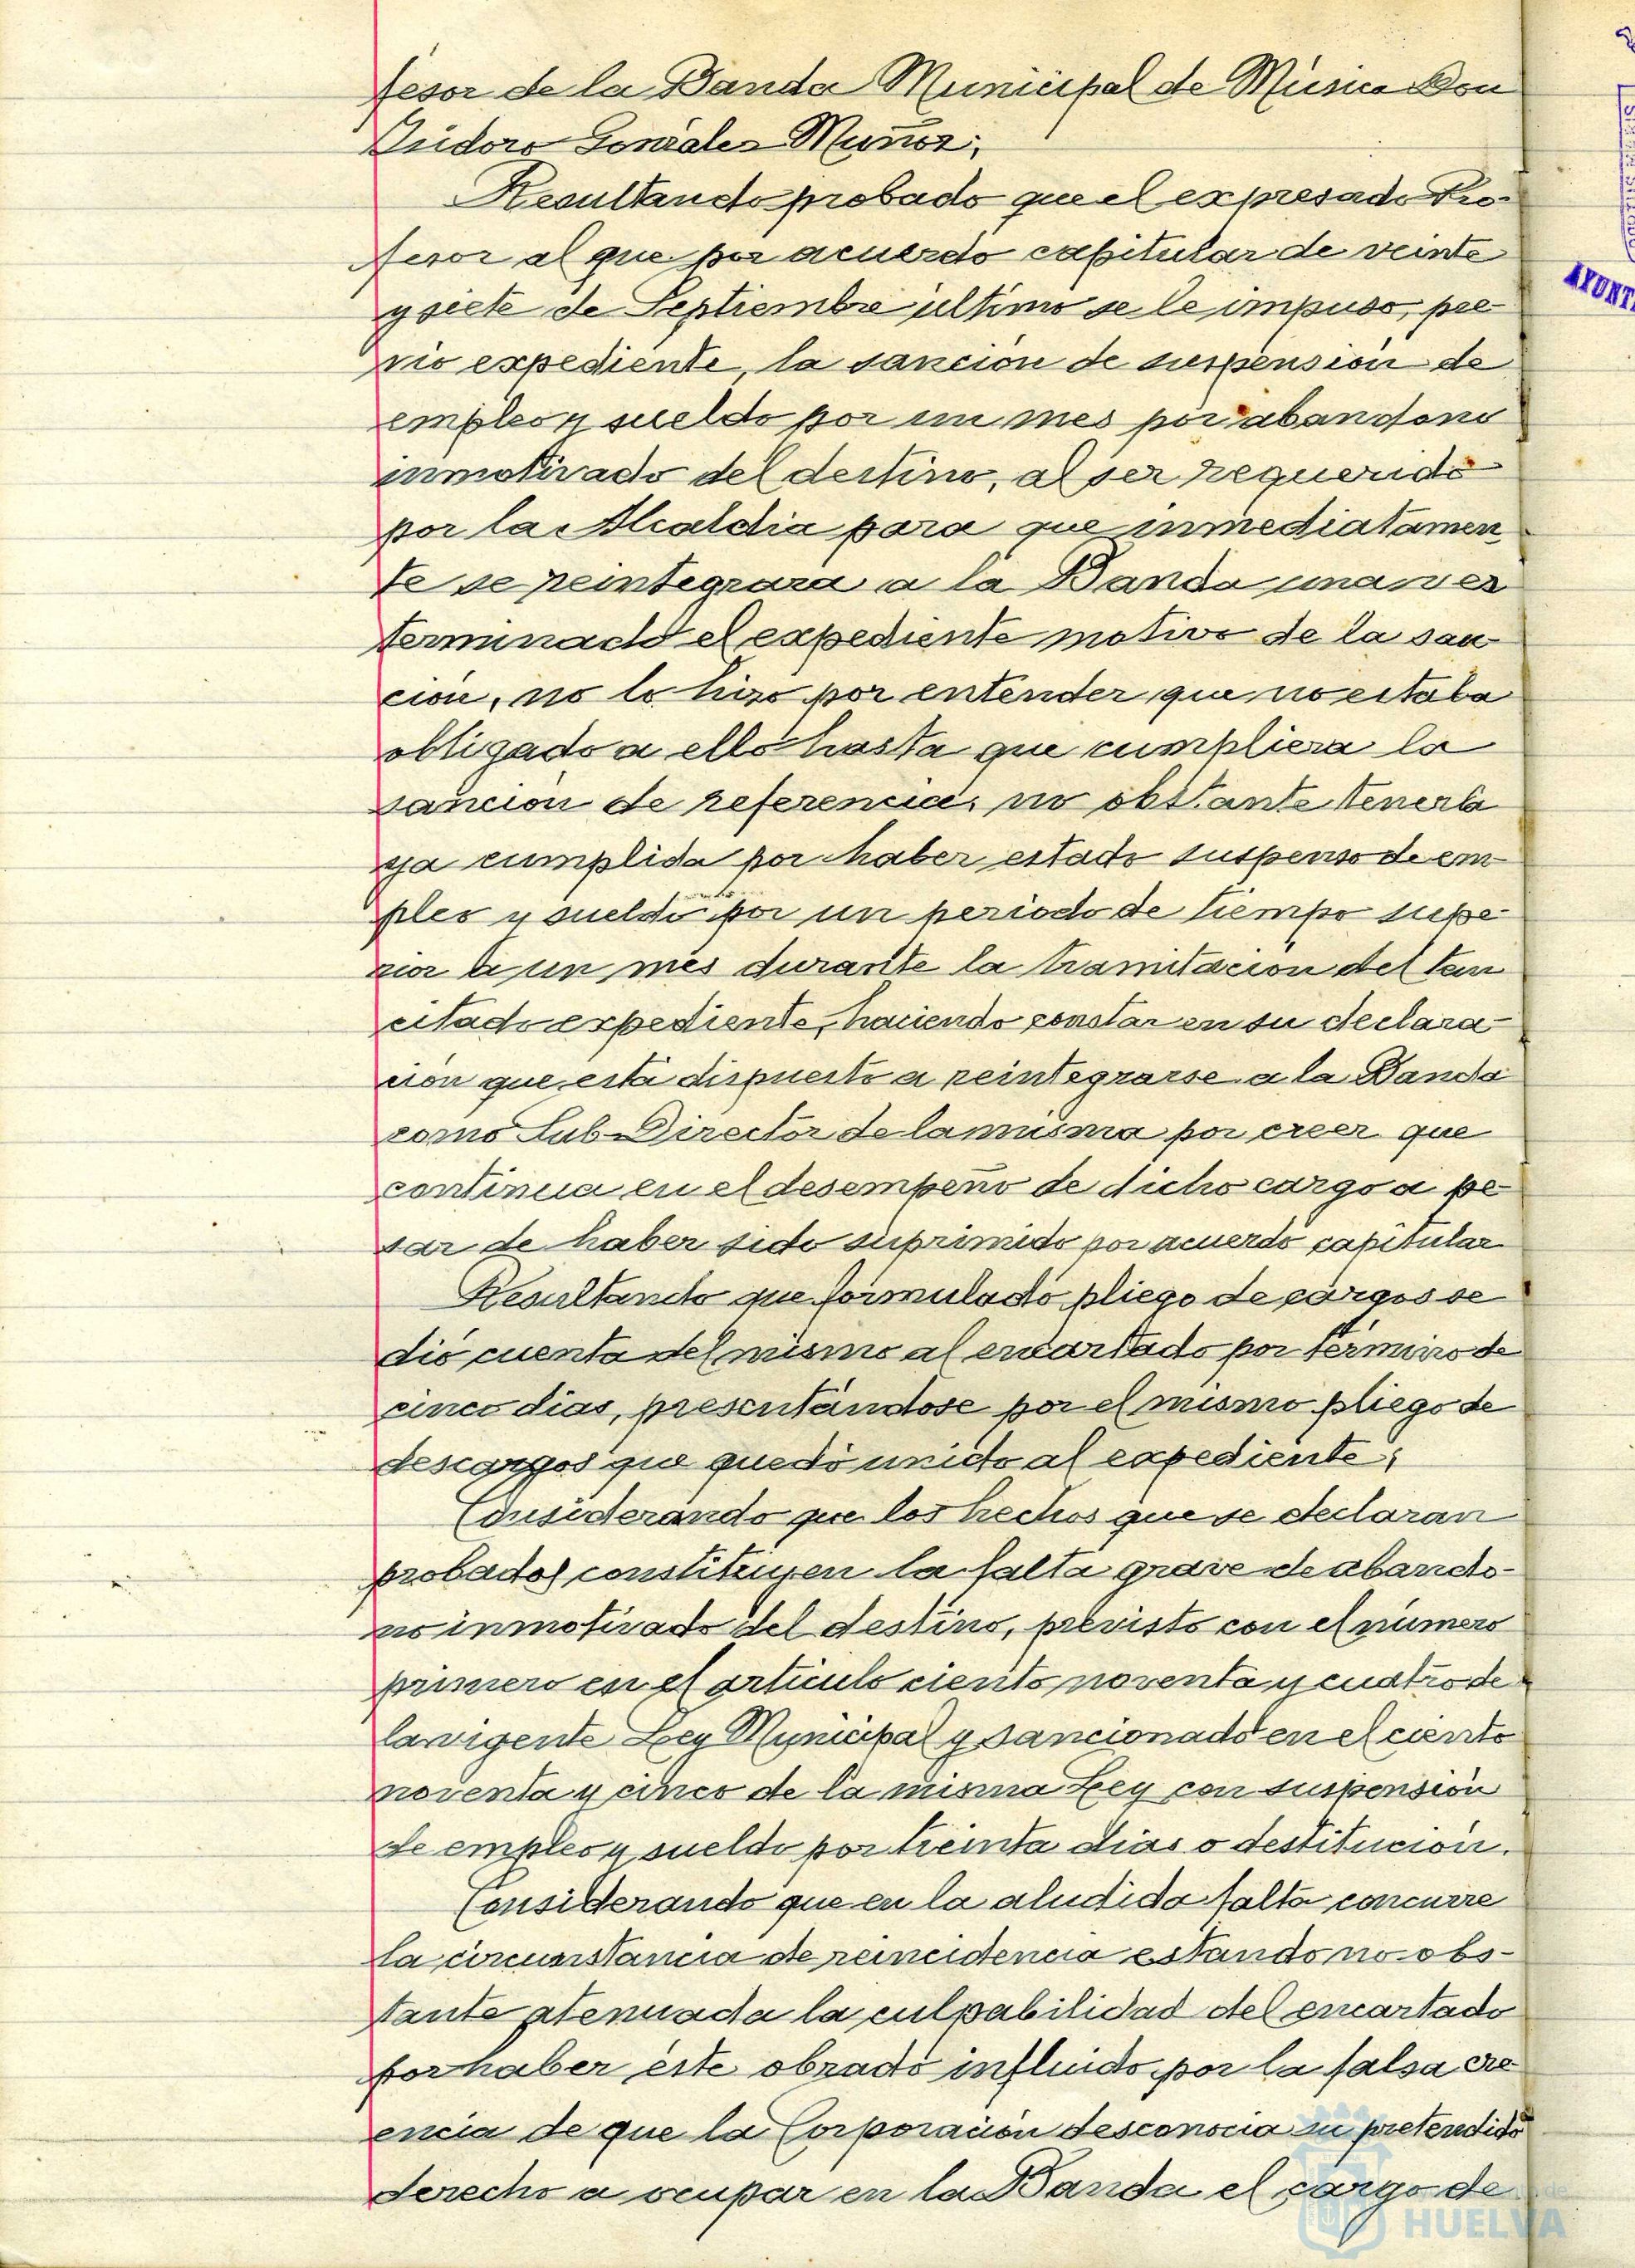 fesor de la Banda Municipal de Música Don
Isidoro González Muñoz;
Resultando probado que el expresado Pro-
fesor al que por acuerdo capitular de veinte
y siete de Septiembre último se le impuso, pre-
vio expediente, la sanción de suspensión de
empleo y sueldo por un mes por abandono
inmotivado del destino, al ser requerido
por la Alcaldia para que inmediatamen
te se reintegrara a la Banda una vez
terminado el expediente motivo de la san-
ción, no lo hizo por entender que no estaba
obligado a ello hasta que cumpliera la
sanción de referencia, no obstante tenerla
ya cumplida por haber estado suspenso de em-
pleo y sueldo por un periodo de tiempo supe-
rior a un mes durante la tramitación del tan
citado expediente, haciendo constar en su declara-
ción que está dispuesto a reintegrarse a la Banda
como Sub-Director de la misma por creer que
continua en el desempeño de dicho cargo a pe-
sar de haber sido suprimido por acuerdo capitular
Resultando que formulado pliego de cargos se
dió cuenta del mismo al encartado por término de
cinco dias, presentándose por el mismo pliego de
descargos que quedó unido al expediente;
Considerando que los hechos que se declaran
probados constituyen la falta grave de abando-
no inmotivado del destino, previsto con el número
primero en el artículo ciento noventa y cuatro de
la vigente Ley Municipal y sancionado en el ciento
noventa y cinco de la misma Ley con suspensión
de empleo y sueldo por treinta dias o destitución.
Considerando que en la aludida falta concurre
la circunstancia de reincidencia estando no obs-
tante atenuada la culpabilidad del encartado
por haber éste obrado influido por la falsa cre
encia de que la Corporación desconocia su pretendido
derecho a ocupar en la Banda el cargo de
AYUNT
HUELVA